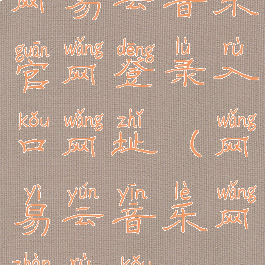 网 易 云 音 乐
guān wǎng dēng lù rù
官 网 登 录 入
kǒu wǎng zhǐ wǎng
口 网 址 （ 网
yì yún yīn lè wǎng
易 云 音 乐 网
zhàn rù kǒu